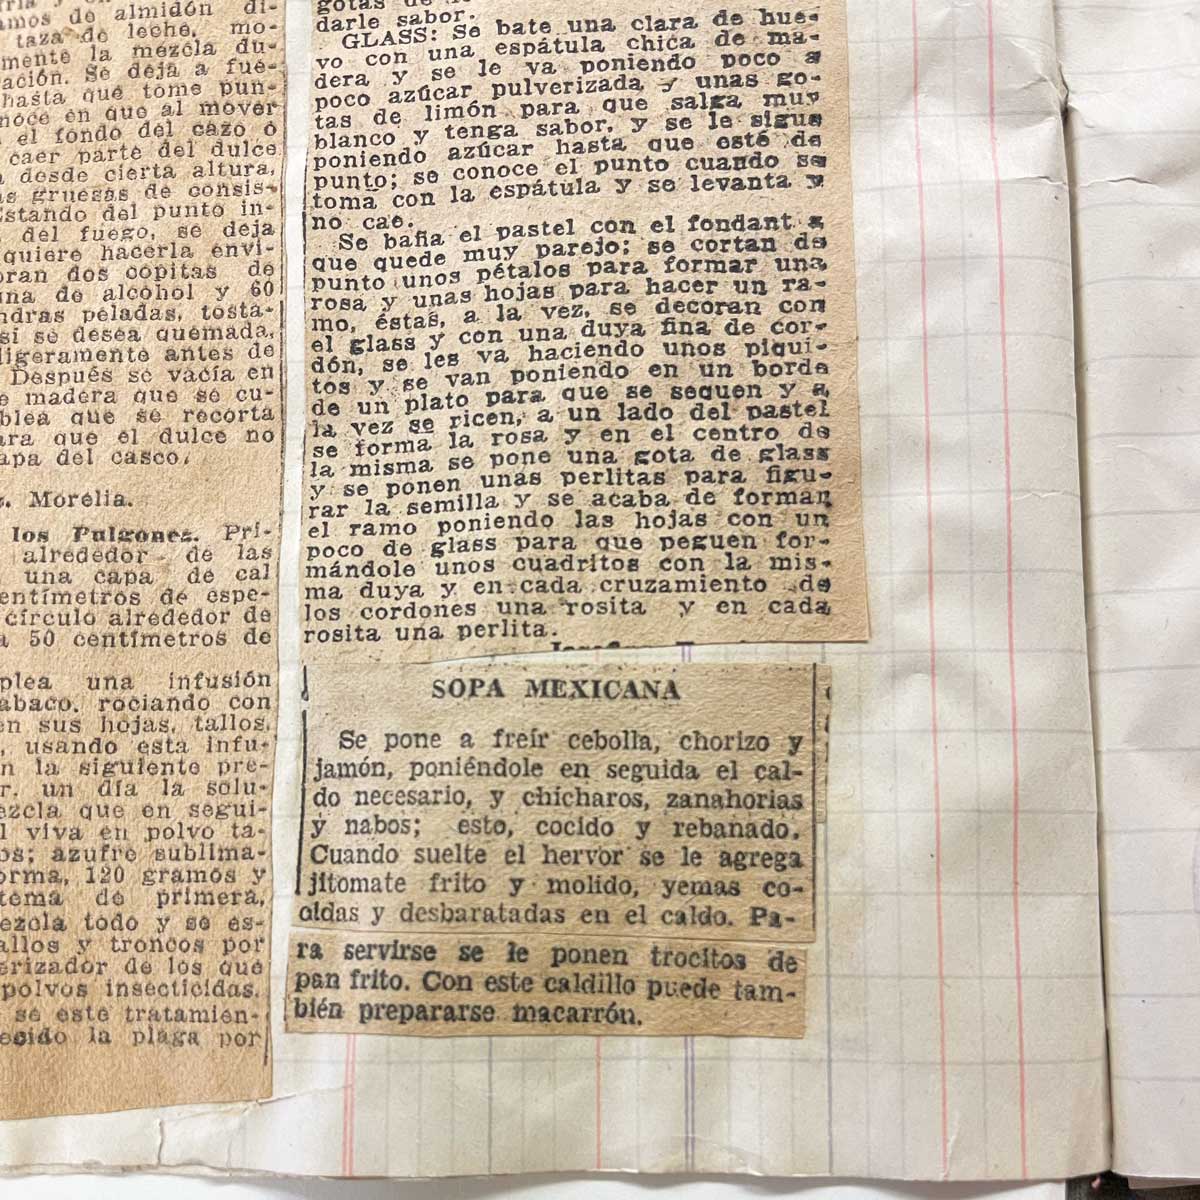 amos de almidón di-
taza de leche, mo-
mente la mezcla du-
ación. Se deja a fue-
hasta que tome pun-
noce en que al mover
el fondo del cazo o
caer parte del dulce
desde cierta altura,
as gruesas de consis-
Estando del punto in-
del fuego, se deja
quiere hacerla envi-
oran dos copitas de
una de alcohol y 60
ndras peladas, tosta-
si se desea quemada,
ligeramente antes de
Después se vacía en
e madera que se cu-
blea que se recorta
ara que el dulce no
apa del casco.
Morelia.
los Pulgones. Pri-
alrededor de las
una capa de cal
entímetros de espe-
círculo alrededor de
a 50 centímetros de
plea una infusión
abaco, rociando con
en sus hojas, tallos,
, usando esta infu-
n la siguiente pre-
r. un día la solu-
ezcla que en segui-
l viva en polvo ta-
os; azufre sublima-
orma, 120 gramos y
tema de primera,
ezcla todo y se es-
allos y troncos por
erizador de los que
polvos insecticidas.
se este tratamien-
ecido la plaga por
gotas de
darle sabor.
GLASS: Se bate una clara de hue-
vo con una espátula chica de ma-
dera y se le va poniendo poco a
poco azúcar pulverizada y unas go-
tas de limón para que salga muy
blanco y tenga sabor, y se le sigue
poniendo azúcar hasta que esté de
punto; se conoce el punto cuando se
toma con la espátula y se levanta y
no cae.
Se baña el pastel con el fondant a
que quede muy parejo; se cortan de
punto unos pétalos para formar una
rosa y unas hojas para hacer un ra-
mo, éstas, a la vez, se decoran con
el glass y con una duya fina de cor-
dón, se les va haciendo unos piqui-
tos y se van poniendo en un borde
de un plato para que se sequen y a
la vez se ricen, a un lado del pastel
se forma la rosa y en el centro de
la misma se pone una gota de glass
y se ponen unas perlitas para figu-
rar la semilla y se acaba de formar
el ramo poniendo las hojas con un
poco de glass para que peguen for-
mándole unos cuadritos con la mis-
ma duya y en cada cruzamiento de
los cordones una rosita y en cada
rosita una perlita.
SOPA MEXICANA
Se pone a freír cebolla, chorizo y
jamón, poniéndole en seguida el cal-
do necesario, y chicharos, zanahorias
y nabos; esto, cocido y rebanado.
Cuando suelte el hervor se le agrega
jitomate frito y molido, yemas co-
cidas y desbaratadas en el caldo. Pa-
ra servirse se le ponen trocitos de
pan frito. Con este caldillo puede tam-
bién prepararse macarrón.